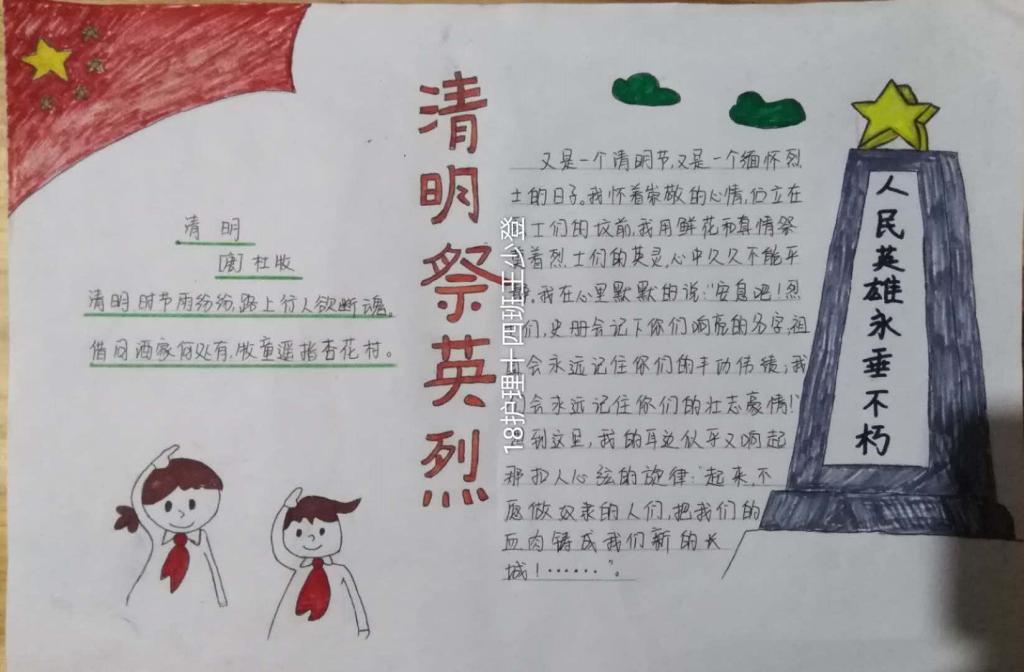 清明祭英烈
清明
[唐]杜牧
清明时节雨纷纷,路上行人欲断魂。
借问酒家何处有,牧童遥指杏花村。
又是一个清明节,又是一个缅怀烈
士的日子。我怀着崇敬的心情,伫立在
士们的坟前,我用鲜花和真情祭
着烈士们的英灵,心中久久不能平
,我在心里默默的说:“安息吧!烈
们,史册会记下你们响亮的名字,祖
会永远记住你们的丰功伟绩,我
会永远记住你们的壮志豪情!”
到这里,我的耳边似乎又响起
那扣人心弦的旋律:“起来,不
愿做奴隶的人们,把我们的
血肉铸成我们新的长
城!……”。
人民英雄永垂不朽
18护理十四班王少登